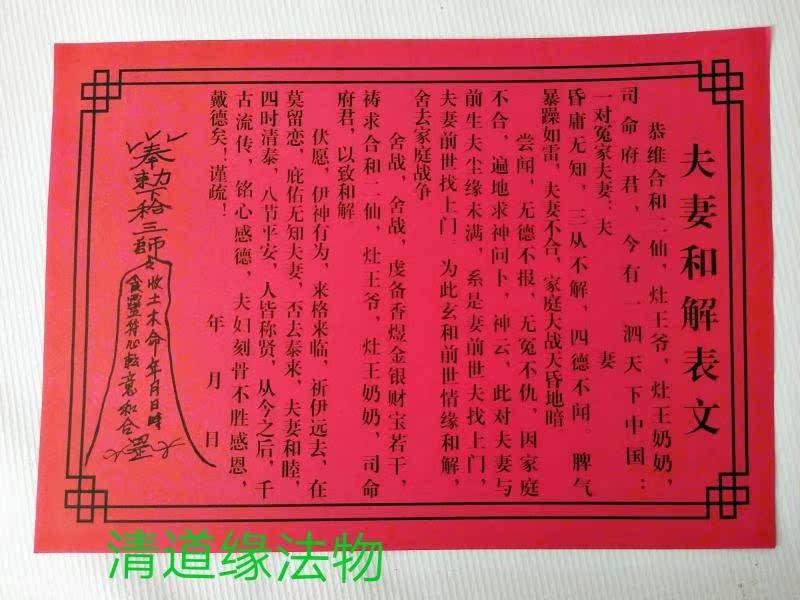 夫妻和解表文
恭维合和二仙，灶王爷，灶王奶奶，
司命府君，今有一泗天下中国：
一对冤家夫妻：夫　　　妻
昏庸无知，三从不解，四德不闻。脾气
暴躁如雷，夫妻不合，家庭大战天昏地暗
尝闻，无德不报，无冤不仇，因家庭
不合，遍地求神问卜，神云，此对夫妻与
前生夫尘缘未满，系是妻前世夫找上门，
夫妻前世找上门　为此玄和前世情缘和解，
舍去家庭战争
舍战，舍战，虔备香煜金银财宝若干，
祷求合和二仙，灶王爷，灶王奶奶，司命
府君，以致和解
伏愿，伊神有为，来格来临，祈伊远去，在
莫留恋，庇佑无知夫妻，否去泰来，夫妻和睦，
四时清泰，八节平安，人皆称贤，从今之后，千
古流传，铭心感德，夫妇刻骨不胜感恩，
戴德矣！谨疏！
年　月　日
奉勅下 三師
收土木命年月日時
食靈符心転意和合
清道缘法物